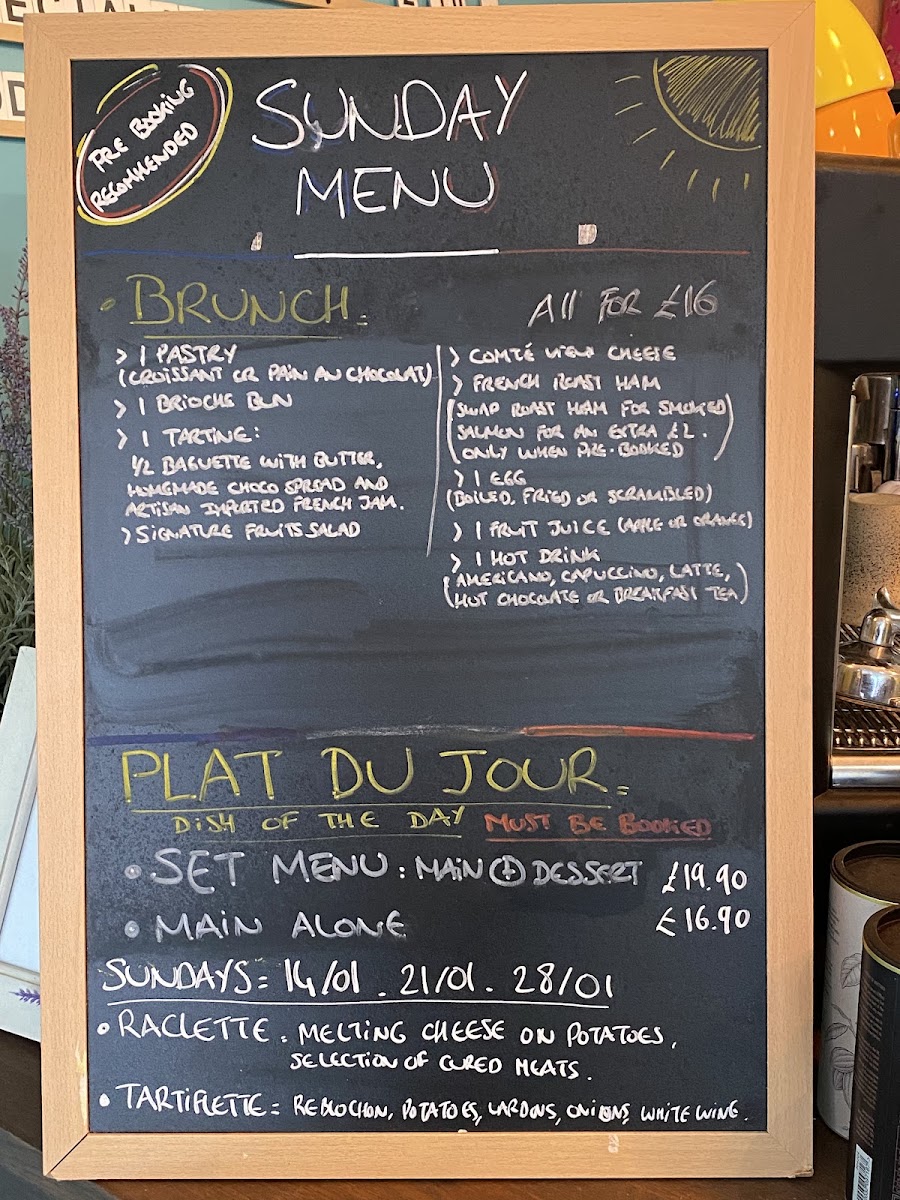 PRE BOOKING
RECOMMENDED
SUNDAY
MENU
• BRUNCH =
All FOR £16
> 1 PASTRY
(CROISSANT OR PAIN AU CHOCOLAT)
> 1 BRIOCHE BUN
> 1 TARTINE:
1/2 BAGUETTE WITH BUTTER,
HOMEMADE CHOCO SPREAD AND
ARTISAN IMPORTED FRENCH JAM.
> SIGNATURE FRUITS SALAD
> COMTÉ VIEUX CHEESE
> FRENCH ROAST HAM
(SWAP ROAST HAM FOR SMOKED
SALMON FOR AN EXTRA £2.
ONLY WHEN PRE-BOOKED)
> 1 EGG
(BOILED, FRIED OR SCRAMBLED)
> 1 FRUIT JUICE (APPLE OR ORANGE)
> 1 HOT DRINK
(AMERICANO, CAPUCCINO, LATTE,
HOT CHOCOLATE OR BREAKFAST TEA)
PLAT DU JOUR =
DISH OF THE DAY MUST BE BOOKED
• SET MENU: MAIN + DESSERT £19.90
• MAIN ALONE £16.90
SUNDAYS = 14/01 . 21/01 . 28/01
• RACLETTE = MELTING CHEESE ON POTATOES,
SELECTION OF CURED MEATS.
• TARTIFLETTE = REBLOCHON, POTATOES, LARDONS, ONIONS, WHITE WINE.